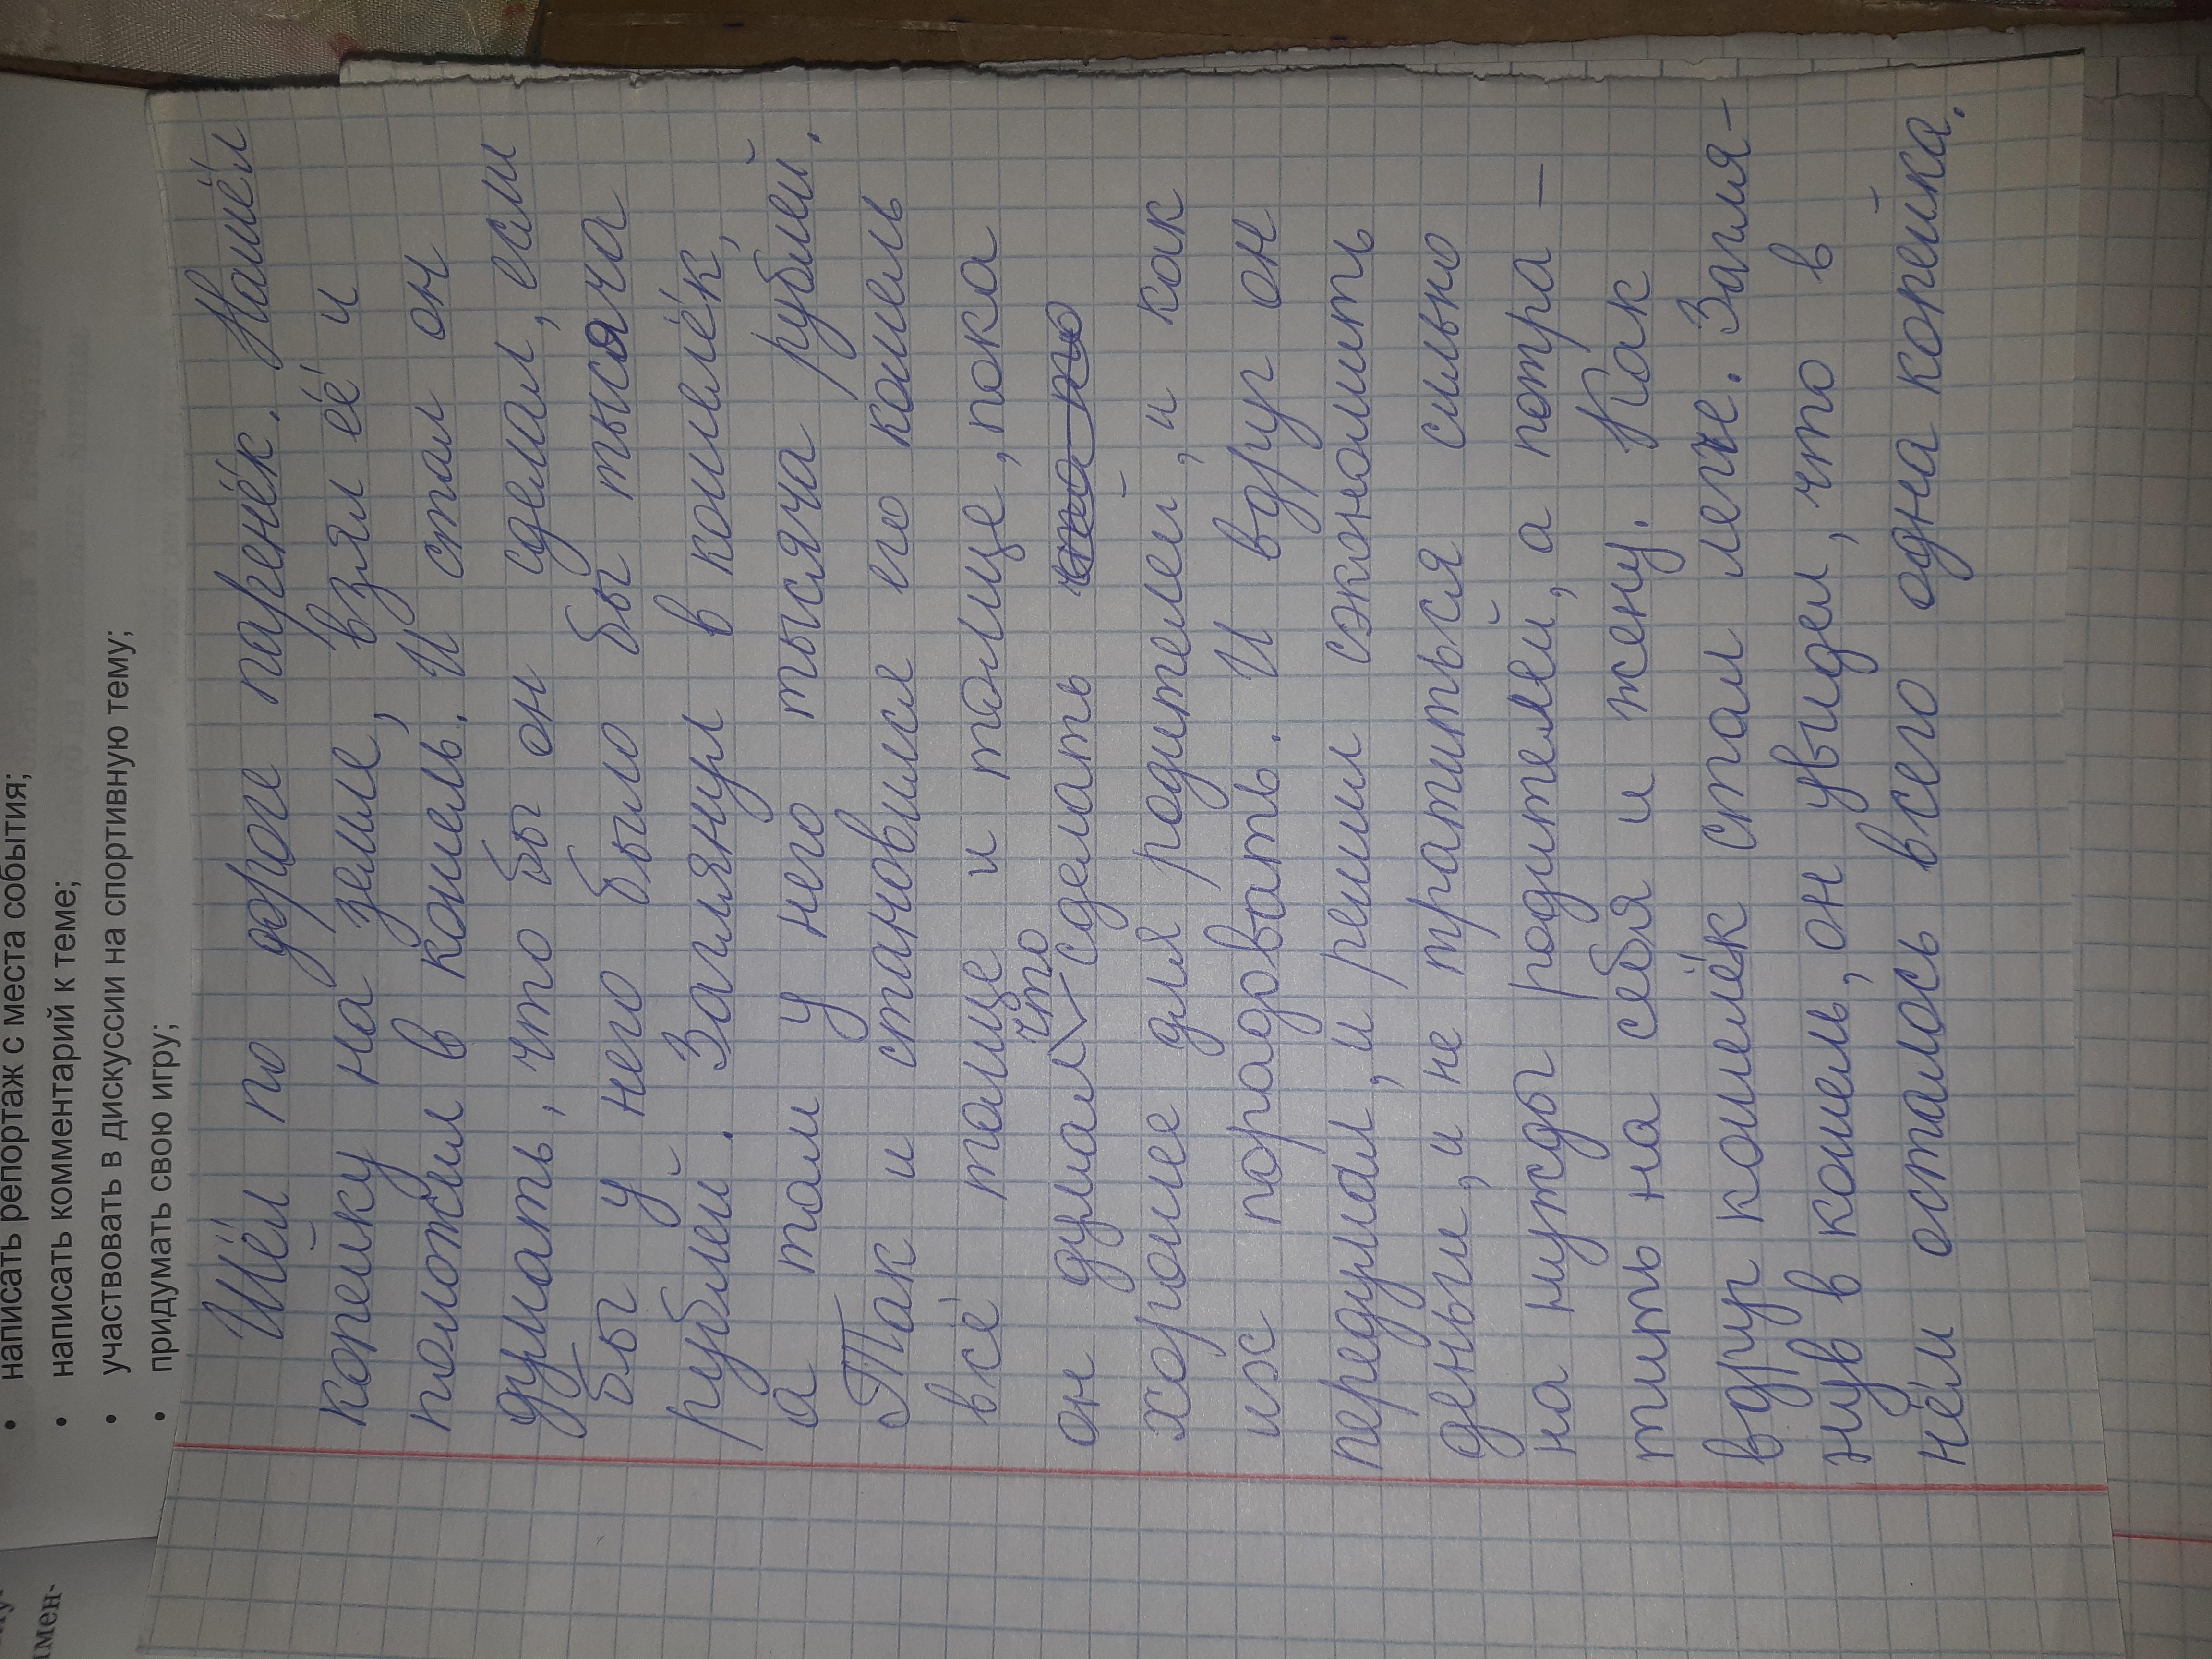 • написать репортаж с места события;
• написать комментарий к теме;
• участвовать в дискуссии на спортивную тему;
• придумать свою игру;
мен-
Шёл по дороге паренёк. Нашёл
копейку на земле, взял её и
положил в кошель. И стал он
думать, что бы он сделал, если
бы у него было бы тысяча
рублей. Заглянул в кошелёк,
а там у него тысяча рублей.
Так и становился его кошель
всё толще и толще, пока
он думал что сделать
хорошее для родителей, и как
их порадовать. И вдруг он
передумал, и решил сэкономить
деньги, и не тратиться сильно
на нужды родителей, а потра-
тить на себя и жену. Как
вдруг кошелёк стал легче. Загля-
нув в кошель, он увидел, что в
нём осталось всего одна копейка.